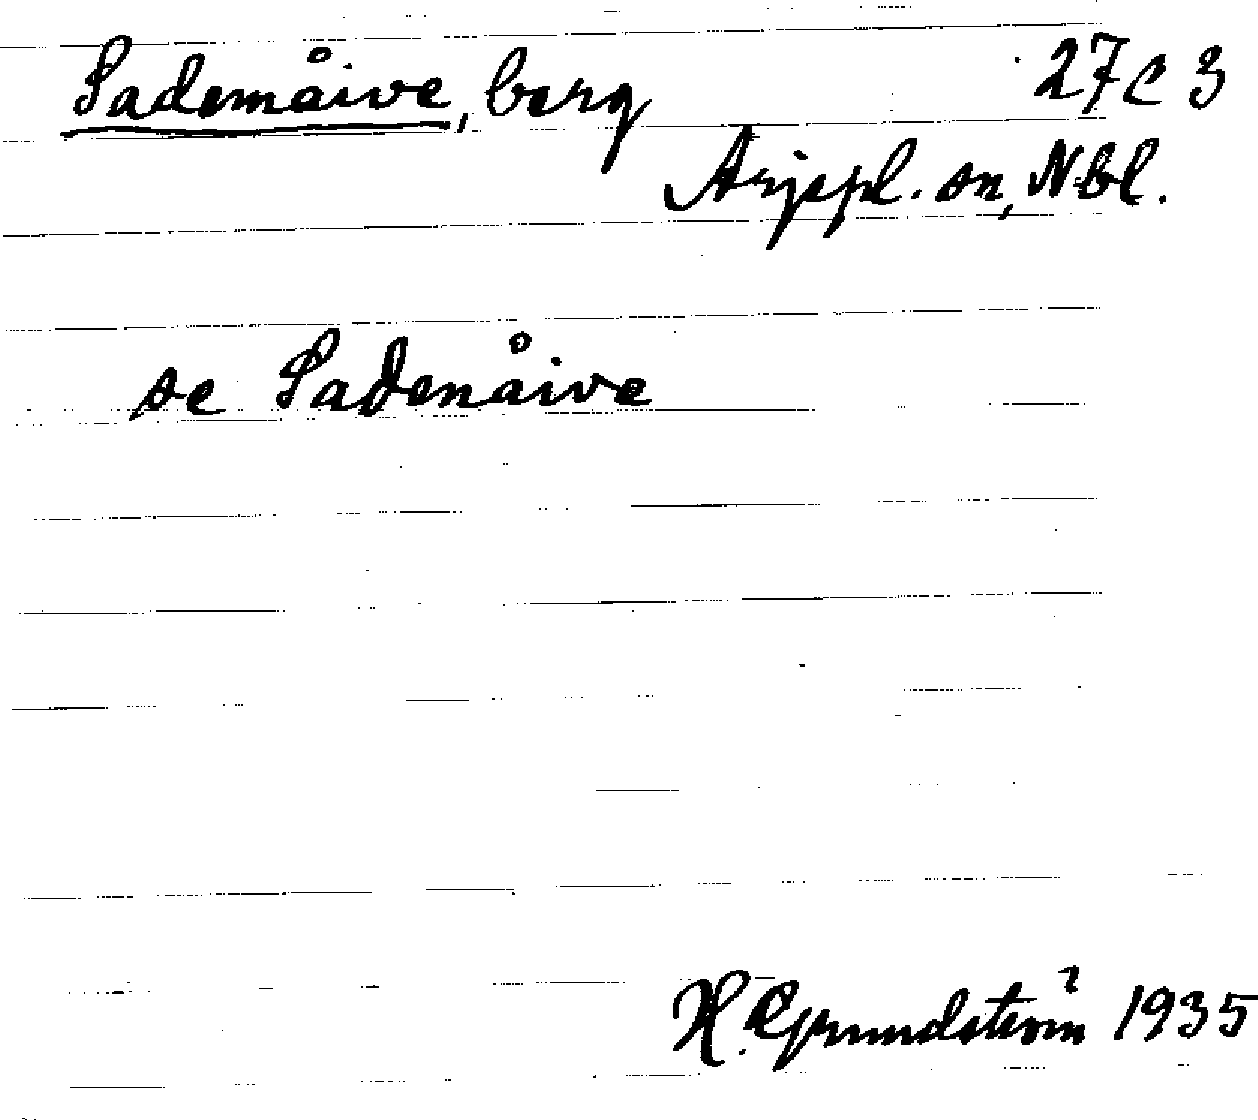 Sademåive, berg 27 C 3
Arjepl. sn, Nbl.
se Sadenåive
H. Grundström 1935